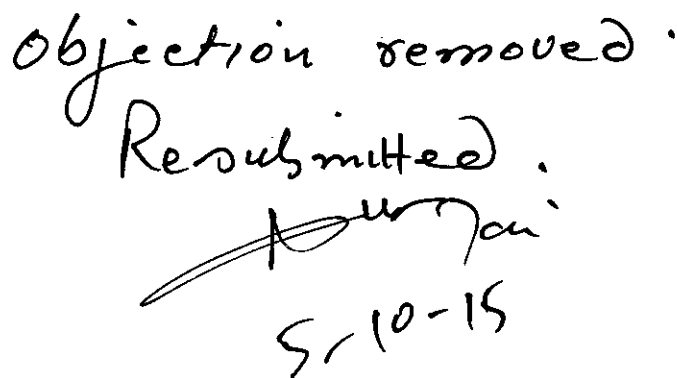 Objection removed.
Resubmitted.
5-10-15